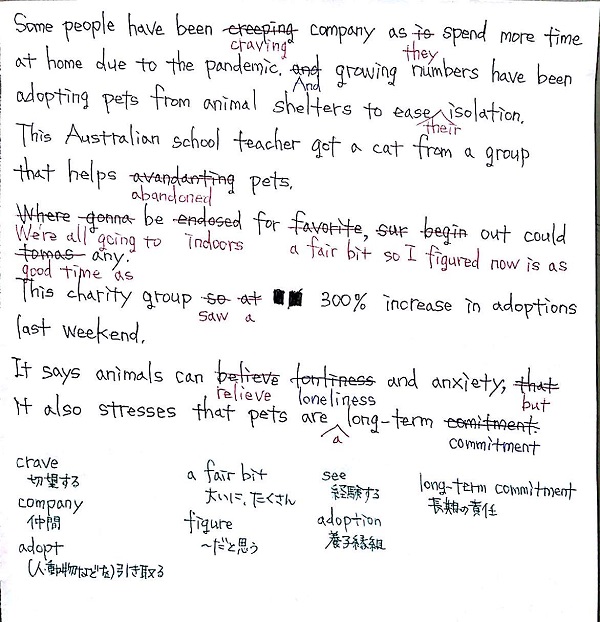 Some people have been creeping company as is spend more time
craving they
at home due to the pandemic. and growing numbers have been
And
adopting pets from animal shelters to ease isolation.
their
This Australian school teacher got a cat from a group
that helps avandanting pets.
abandoned
Where gonna be endosed for favorite, sur begin out could
We're all going to indoors a fair bit so I figured now is as
tomas any.
good time as
This charity group so at 300% increase in adoptions
saw a
last weekend.
It says animals can believe lonliness and anxiety, that
relieve loneliness but
It also stresses that pets are long-term comitment.
a commitment
crave a fair bit see long-term commitment
切望する 大いに、たくさん 経験する 長期の責任
company figure adoption
仲間 〜だと思う 養子縁組
adopt
(人・動物などを)引き取る